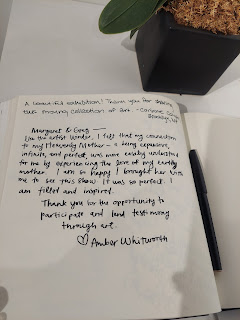 A beautiful exhibition! Thank you for sharing
this moving collection of art. - Corinne
Brooklyn, NY
Margaret & Greg —
Like the artist wonder, I felt that my connection
to my Heavenly Mother - a being expansive,
infinite, and perfect, was more easily understood
to me by experiencing the love of my earthly
mother. I am so happy I brought her with
me to see this show. It was so perfect. I
am filled and inspired.
Thank you for the opportunity to
participate and lend testimony
through art.
♡ Amber Whitworth